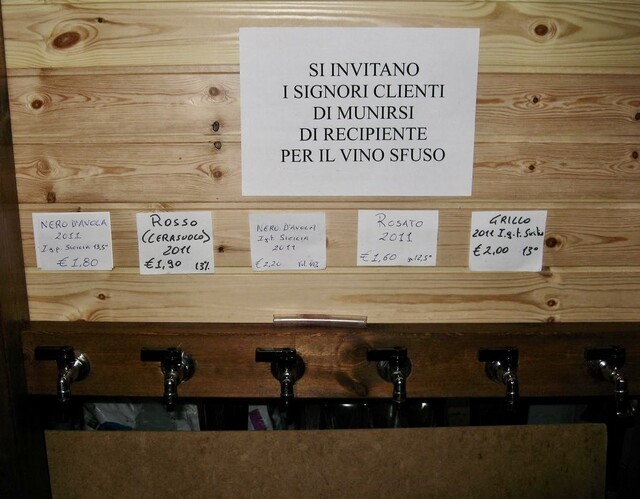 SI INVITANO
I SIGNORI CLIENTI
DI MUNIRSI
DI RECIPIENTE
PER IL VINO SFUSO
NERO D'AVOLA
2011
I.g.p. Sicilia 13,5°
€ 1,80
ROSSO
(CERASUOLO)
2011
€ 1,90 13%
NERO D'AVOLA
I.g.t. Sicilia
2011
€ 2,20 Vol
ROSATO
2011
€ 1,60 12,5°
GRILLO
2011 I.g.t. Sicilia
€ 2,00 13°